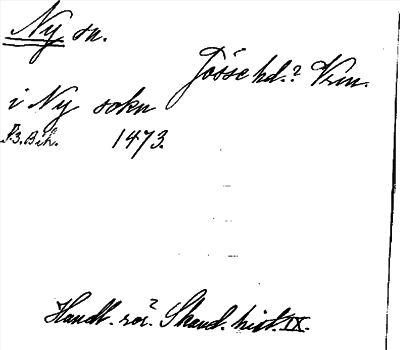 Ny sn.
Jösse hd.? Vrm.
i Ny sokn
P3. Bih. 1473.
Handl. rör? Skand. hist. IX.